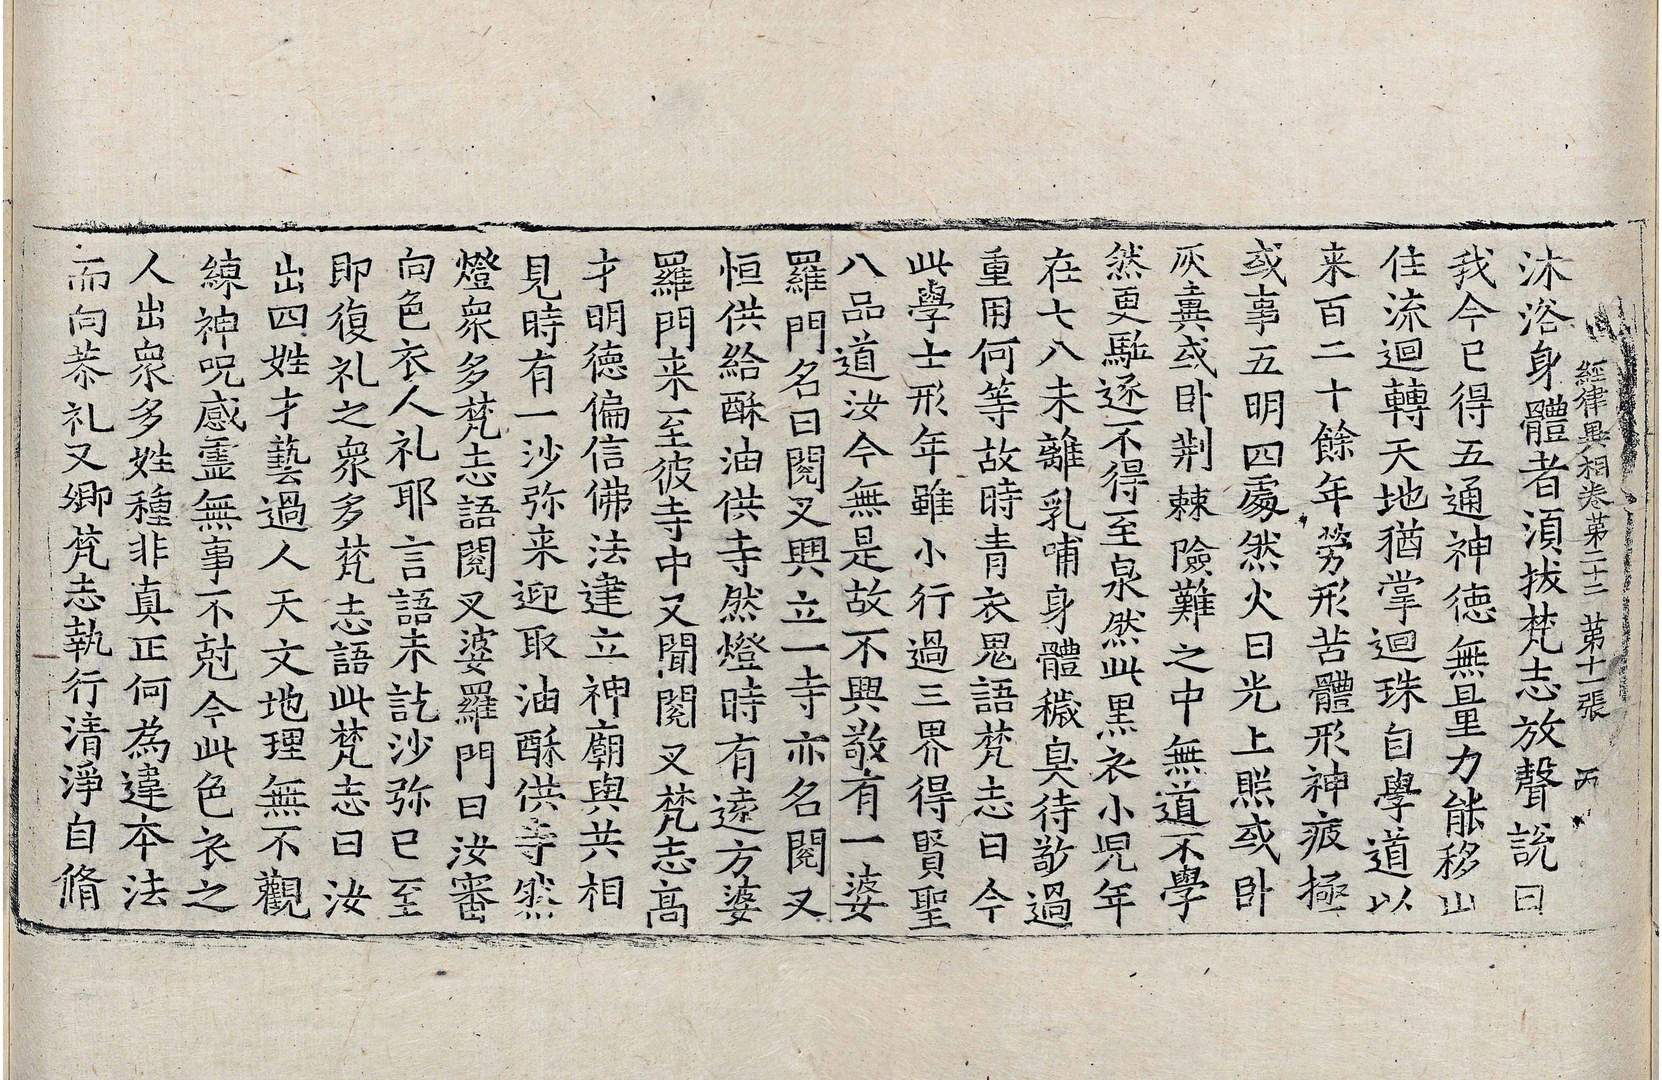 經律異相卷第二十二 第十一張 丙
沐浴身體者湏拔梵志放聲說曰
我今已得五通神德無量力能移山
住流迴轉天地猶掌迴珠自學道以
来百二十餘年勞形苦體形神疲極
或事五明四處然火日光上熙或卧
灰糞或卧荆棘險難之中無道不學
然更駈逐不得至泉然此黒衣小児年
在七八未離乳哺身體穢臭待敬過
重用何等故時青衣鬼語梵志曰今
此學士形年雖小行過三界得賢聖
八品道汝今無是故不興敬有一婆
羅門名曰閱叉興立一寺亦名閱叉
恒供給酥油供寺然燈時有遠方婆
羅門来至彼寺中又聞閱叉梵志高
才明德偏信佛法達立神廟與共相
見時有一沙弥来迎取油酥供寺然
燈衆多梵志語閱叉婆羅門曰汝審
向色衣人礼耶言語未訖沙弥已至
即復礼之衆多梵志語此梵志曰汝
出四姓才藝過人天文地理無不觀
練神呪感靈無事不尅今此色衣之
人出衆多姓種非真正何為違本法
而向恭礼又卿梵志執行清淨自脩